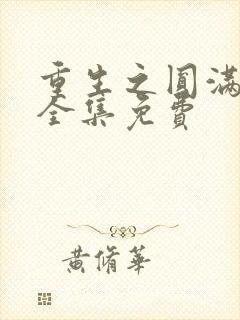 重生之圆满
全集免费
黄脩华